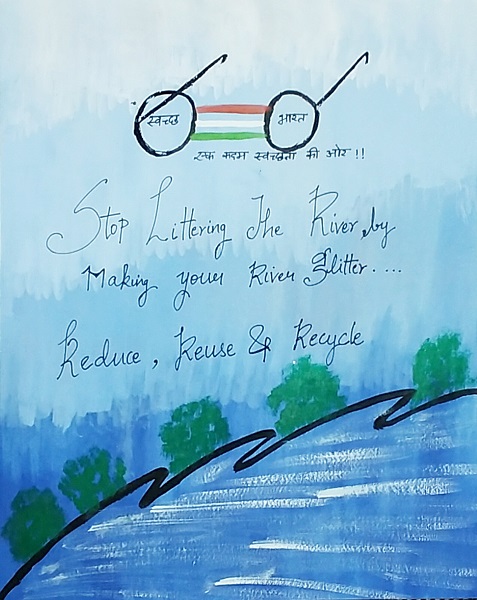 स्वच्छ भारत
एक कदम स्वच्छता की ओर !!
Stop Littering The River, by
Making your River Glitter....
Reduce, Reuse & Recycle